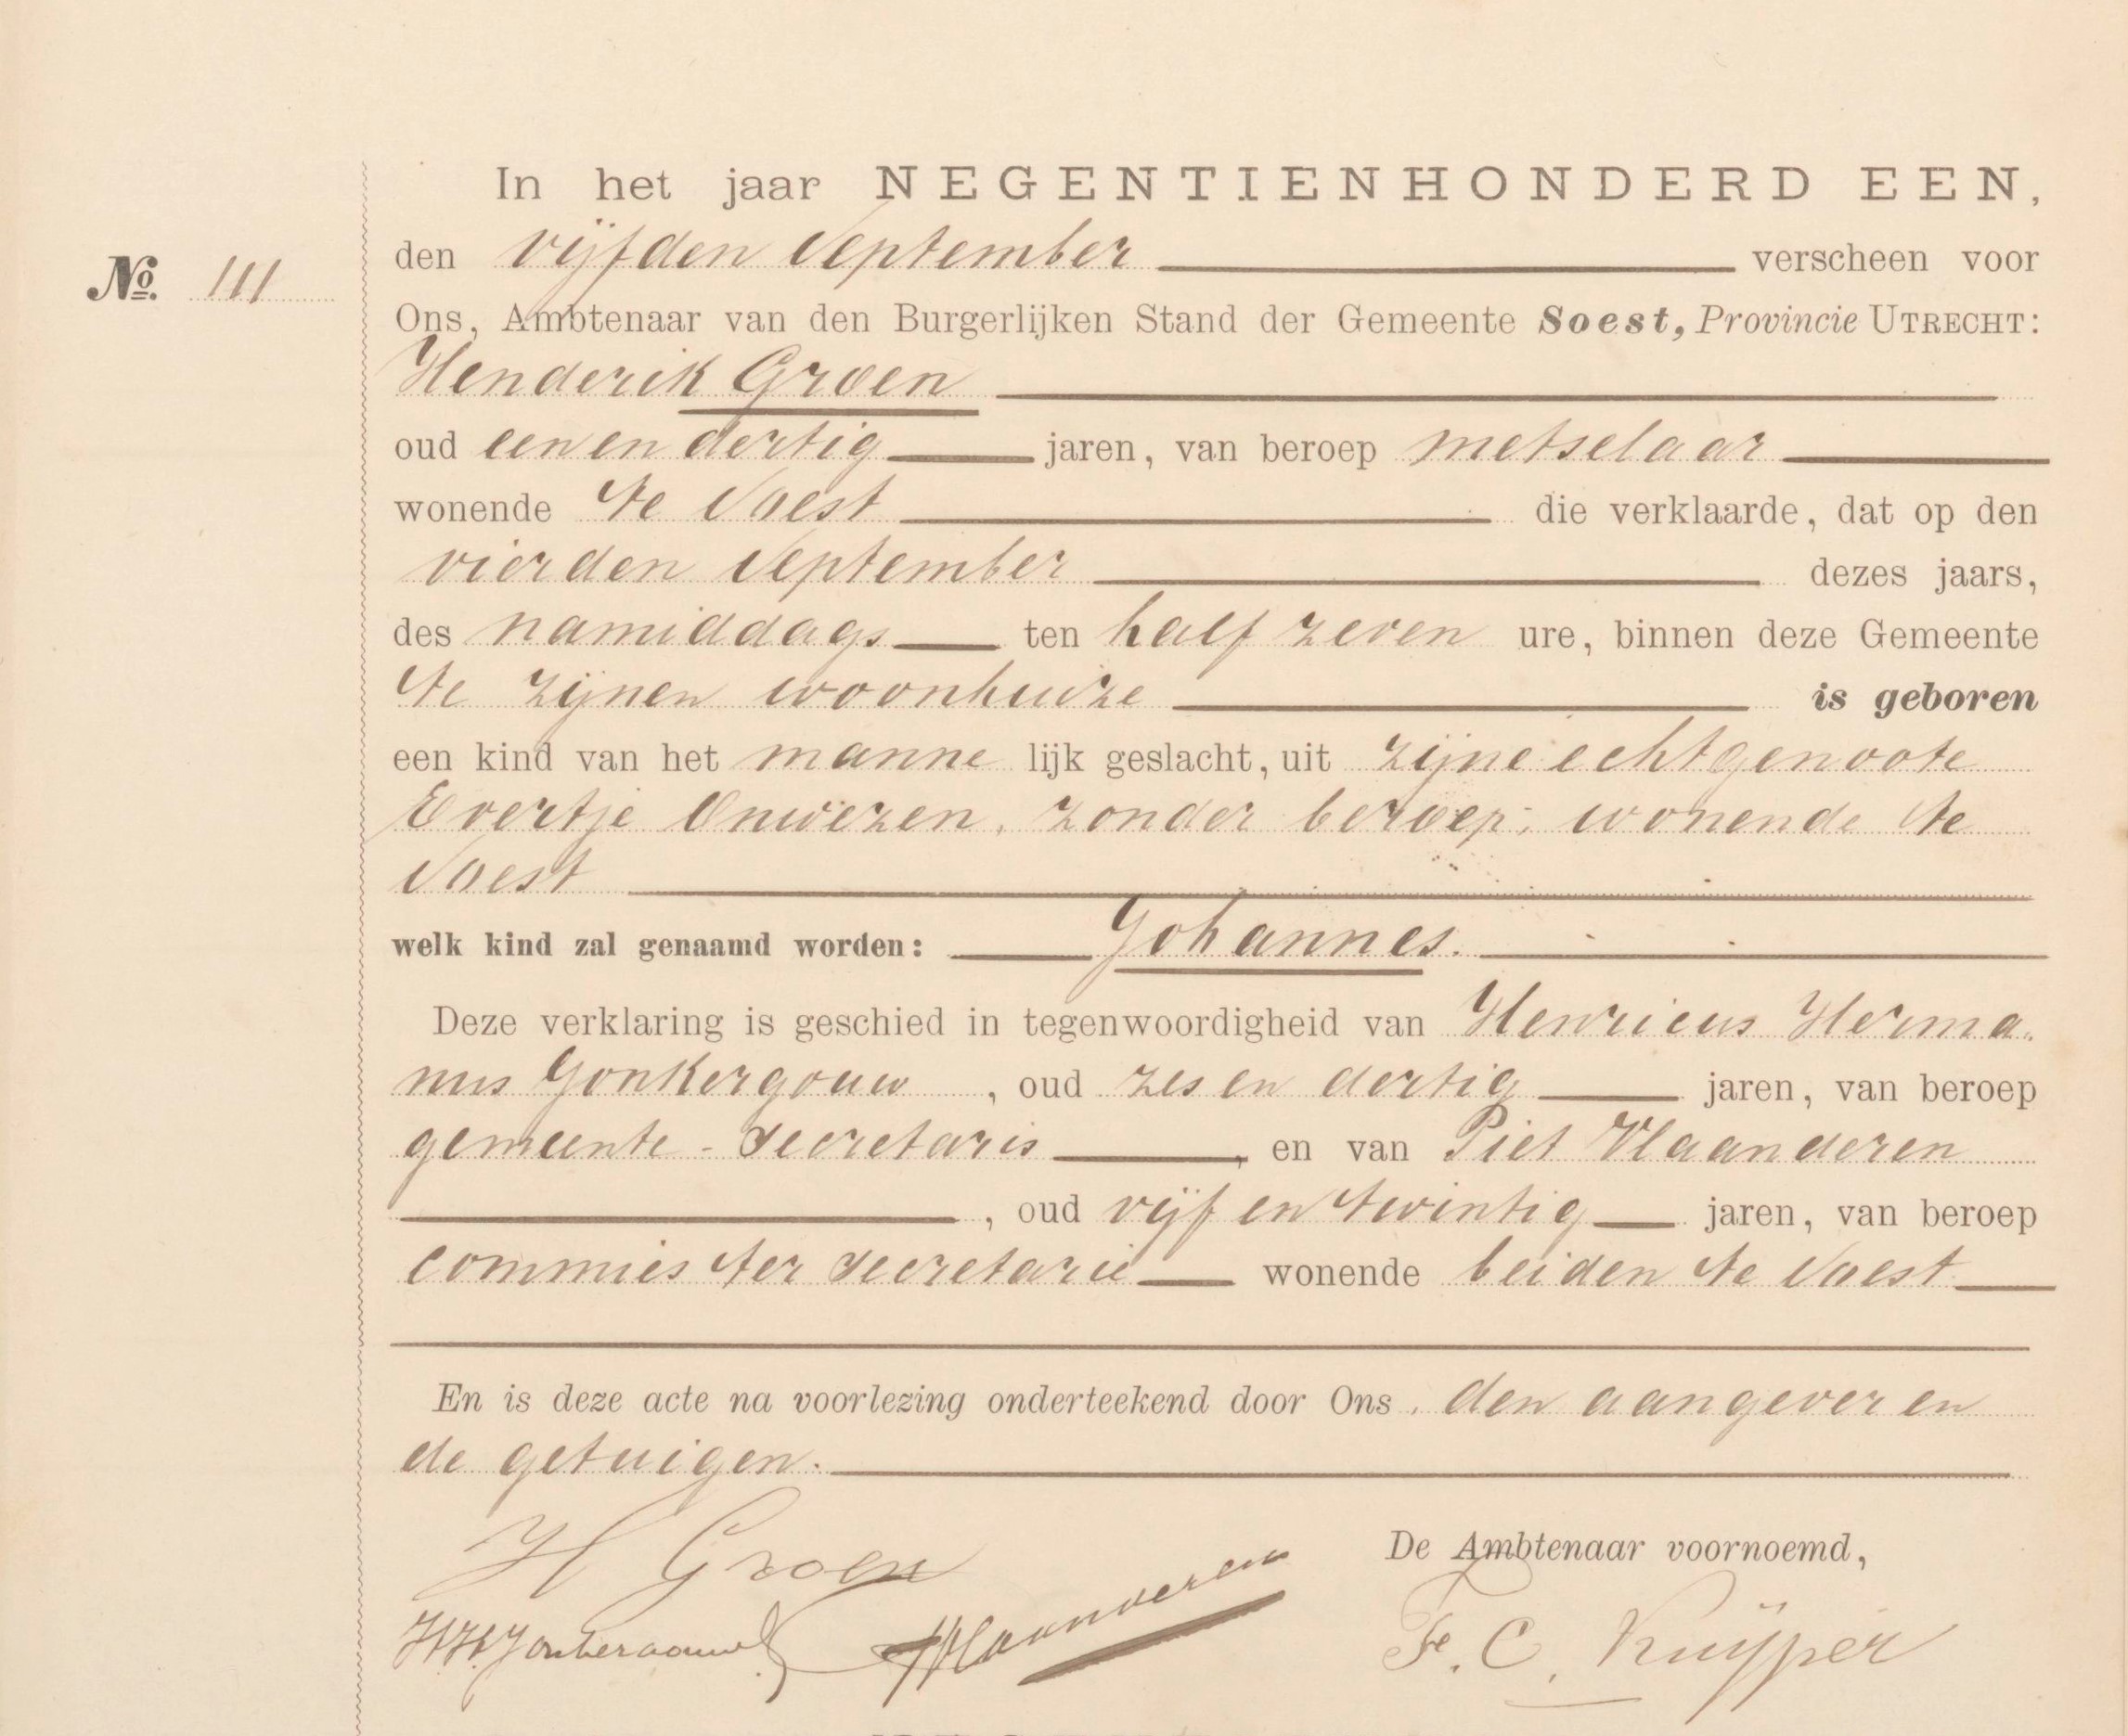 In het jaar NEGENTIENHONDERD EEN,
den vijfden September verscheen voor
No. 111
Ons, Ambtenaar van den Burgerlijken Stand der Gemeente Soest, Provincie UTRECHT:
Henderik Groen
oud een en dertig jaren, van beroep metselaar
wonende te Soest die verklaarde, dat op den
vierden September dezes jaars,
des namiddags ten half zeven ure, binnen deze Gemeente
te zijnen woonhuize is geboren
een kind van het manne lijk geslacht, uit zijne echtgenoote
Evertje Onwezen, zonder beroep, wonende te
Soest
welk kind zal genaamd worden: Johannes.
Deze verklaring is geschied in tegenwoordigheid van Henricus Herma-
nus Jonkergouw, oud zes en dertig jaren, van beroep
gemeente-secretaris, en van Piet Vlaanderen
, oud vijf en twintig jaren, van beroep
commies ter secretarie wonende beiden te Soest
En is deze acte na voorlezing onderteekend door Ons, den aangever en
de getuigen.
De Ambtenaar voornoemd,
H Groen
HH Jonkergouw PVlaanderen F. C. Kuijper